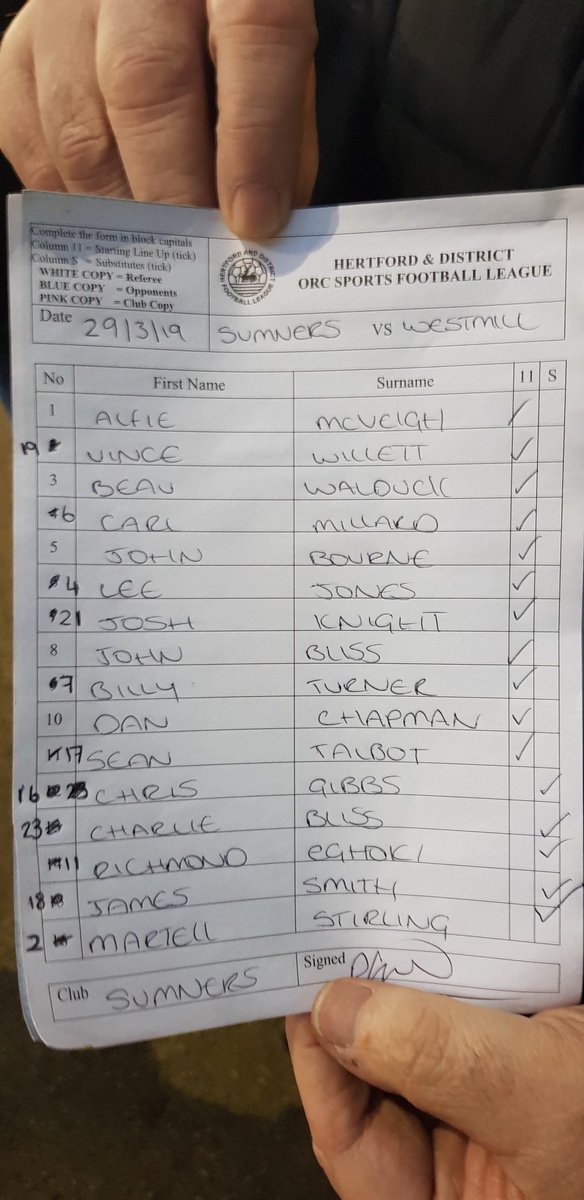 Complete the form in block capitals
Column 11 = Starting Line Up (tick)
Column S = Substitutes (tick)
WHITE COPY = Referee
BLUE COPY = Opponents
PINK COPY = Club Copy
HERTFORD AND DISTRICT FOOTBALL LEAGUE
HERTFORD & DISTRICT
ORC SPORTS FOOTBALL LEAGUE
Date 29/3/19 SUMNERS VS WESTMILL
No First Name Surname 11 S
1 ALFIE MCVEIGH ✓
19 VINCE WILLETT ✓
3 BEAU WALDUCK ✓
6 CARL MILLARD ✓
5 JOHN BOURNE ✓
4 LEE JONES ✓
21 JOSH KNIGHT ✓
8 JOHN BLISS ✓
7 BILLY TURNER ✓
10 DAN CHAPMAN ✓
17 SEAN TALBOT ✓
16 CHRIS GIBBS ✓
23 CHARLIE BLISS ✓
11 RICHMOND EGHOKI ✓
18 JAMES SMITH ✓
2 MARTELL STIRLING ✓
Club SUMNERS Signed